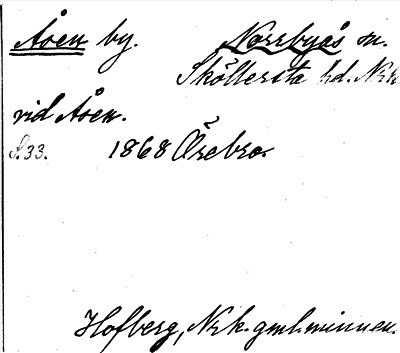 Åsen by. Norrbyås sn.
Sköllersta hd. Nrk.
vid Åsen.
S. 33. 1868 Örebro.
Hofberg, Nrk. gml. minnen.